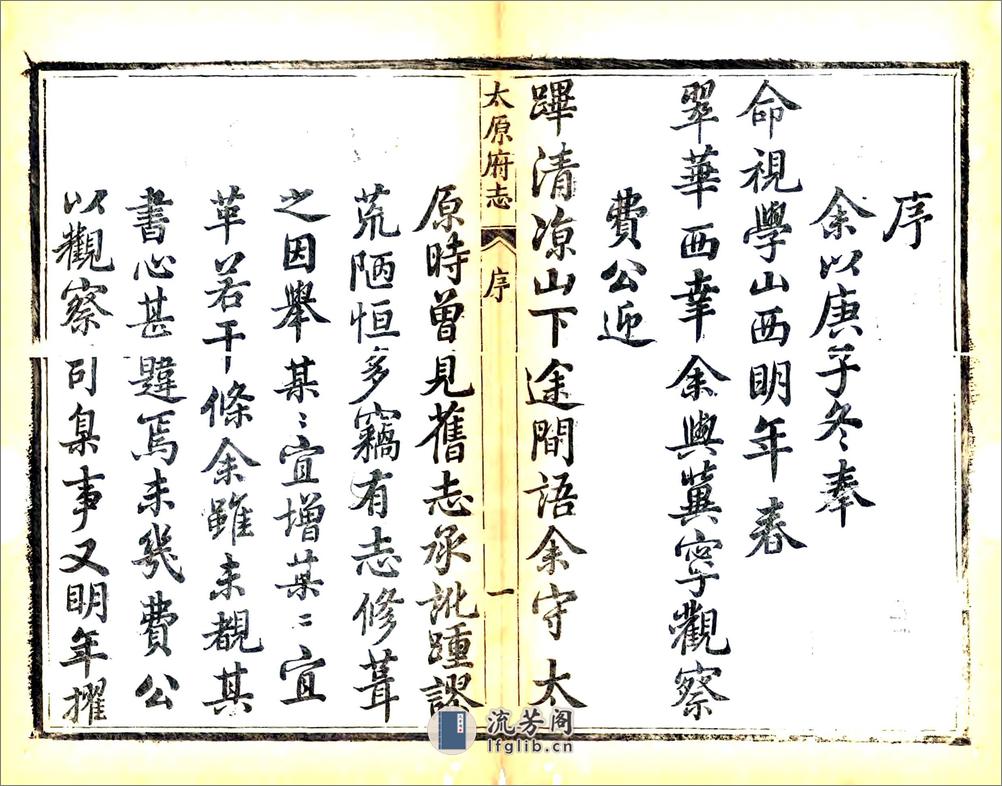 序
余以庚子冬奉
命視學山西明年春
翠華西幸余與冀寧觀察
費公迎
蹕清涼山下途間語余守太
太原府志
序
一
原時曾見舊志承訛踵謬
荒陋恒多竊有志修葺
之因舉某〻宜增某〻宜
革若干條余雖未覩其
書心甚韙焉未幾費公
以觀察司臬事又明年擢
流芳阁
lfglib.cn